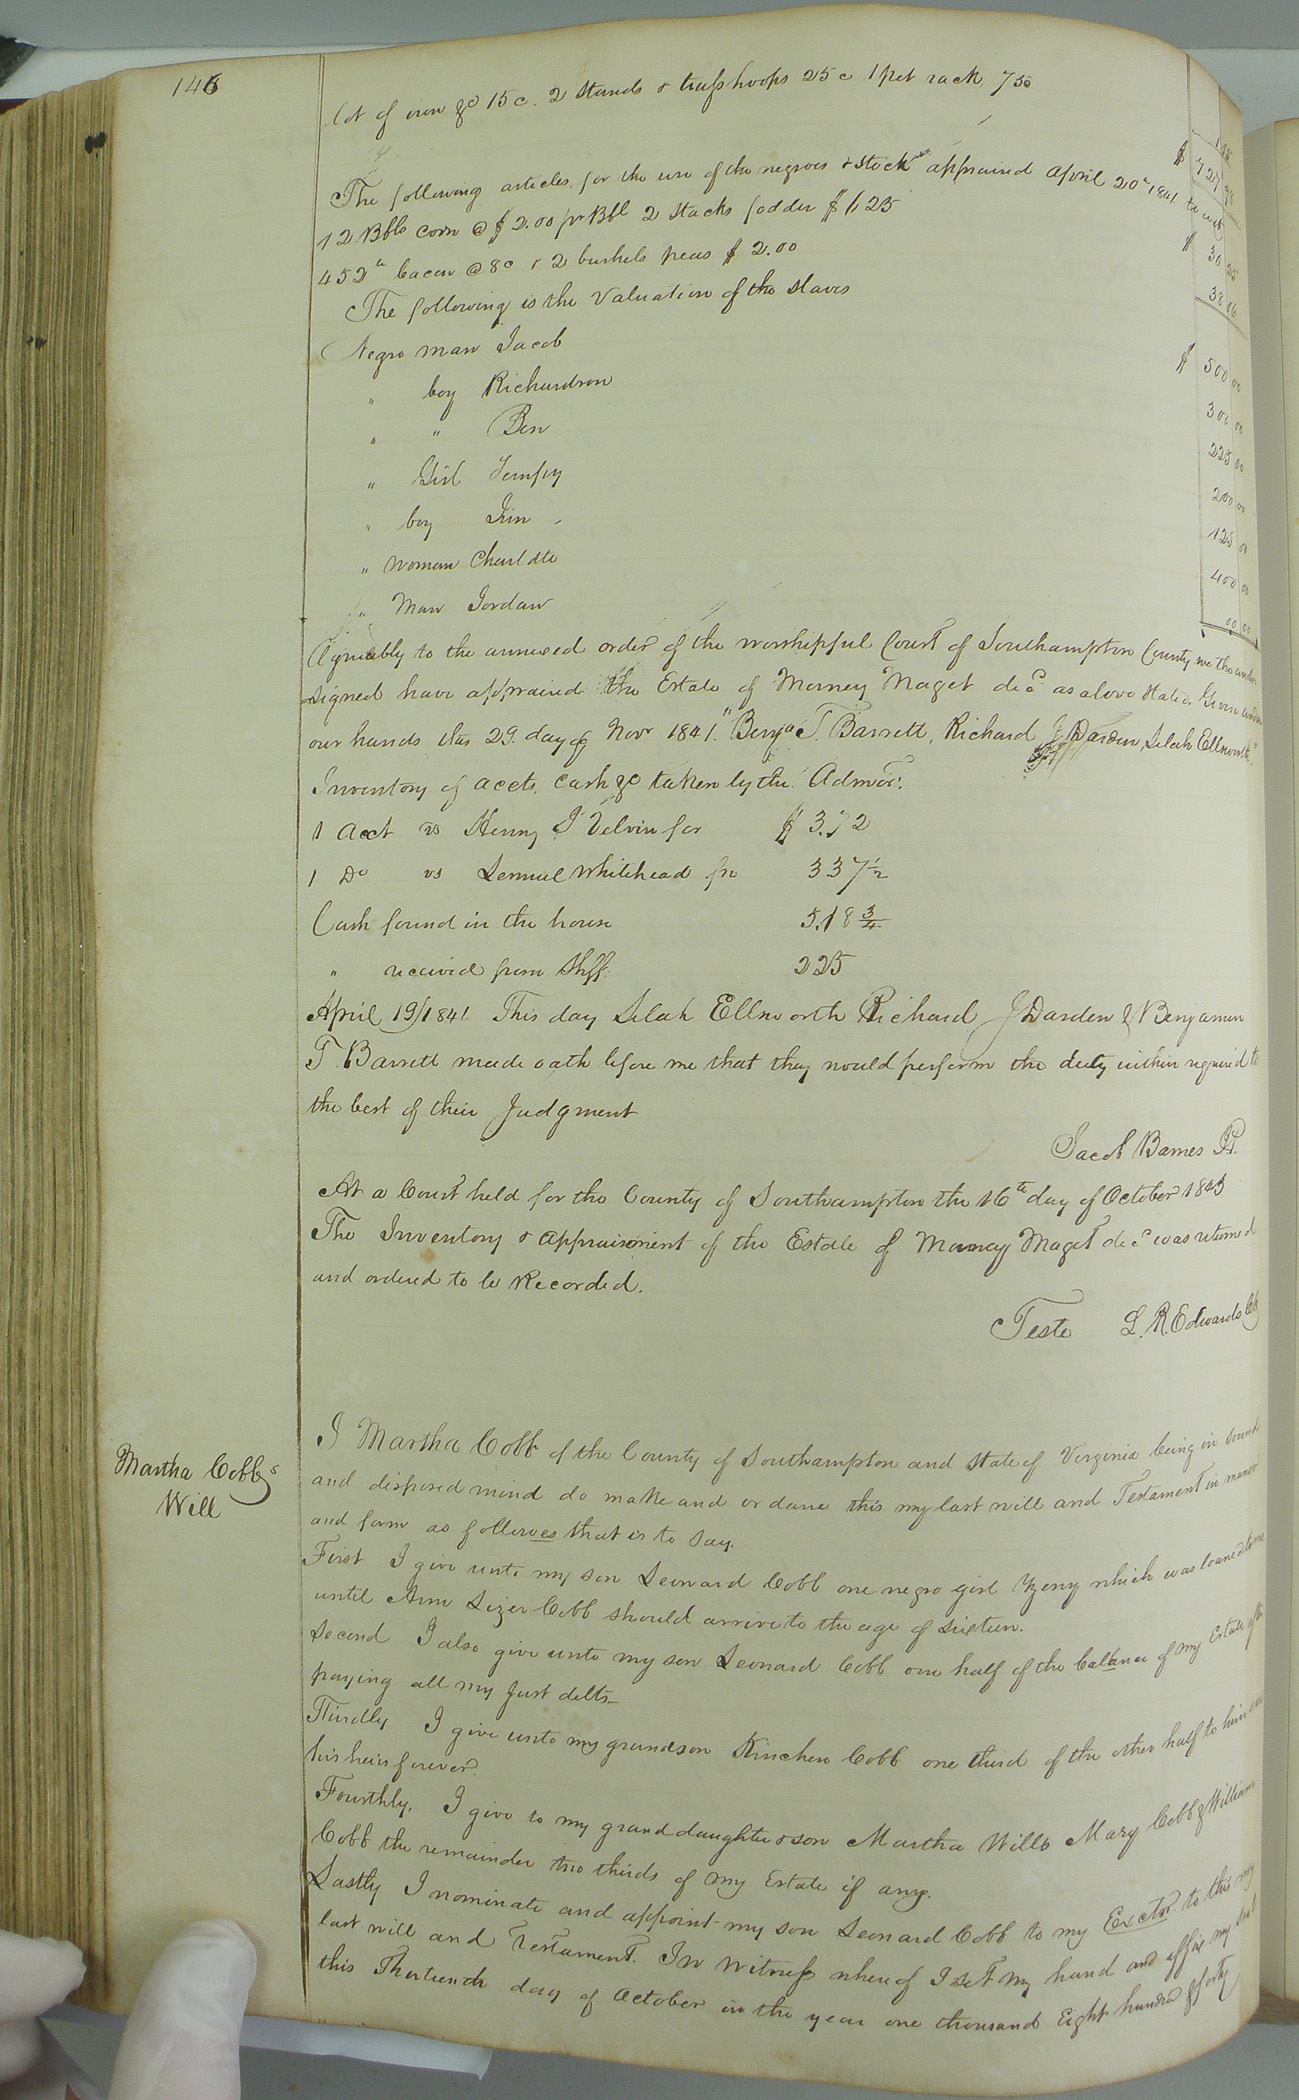 146
lot of iron &c 15c. 2 stands & truss hoops 25c 1 pet rack 75c
$ 727 98
The following articles for the use of the negroes & stock appraised April 20th 1841 to wit
12 Bbls Corn @ $2.00 pr Bbl 2 Stacks fodder $ 6.25 $ 30 25
452 lb bacon @ 8c & 2 bushels peas $ 2.00 38 16
The following is the Valuation of the slaves
Negro man Jacob $ 500 00
" boy Richardson 300 00
" " Ben 225 00
" Girl Tempy 200 00
" boy Jim 125 00
" Woman Charlotte 400 00
" Man Jordan 00 00
Agreeably to the annexed order of the worshipful Court of Southampton County we the under-
signed have appraised the Estate of Maget decd as above stated. Given under
our hands this 29. day of Novr 1841. Benja T. Barrett, Richard J Darden, Selah Ellsworth
Inventory of accts. cash &c taken by the Admor.
1 Acct vs Henry J Velvin for $ 3.72
1 Do vs Lemuel Whitehead for 337½
Cash found in the house 5.18¾
" received from Shff. 225
April 19/1841 This day Selah Ellsworth Richard J Darden & Benjamin
T. Barrett made oath before me that they would perform the duty within required to
the best of their Judgment
Jacob Barnes
At a Court held for the County of Southampton the 16th day of October 1843
The Inventory & appraisement of the Estate of Maget decd was returned
and ordered to be Recorded.
Teste L. R. Edwards Clk
Martha Cobbs
Will
I Martha Cobb of the County of Southampton and State of Virginia being in sound
and disposed mind do make and ordane this my last will and Testament in manor
and form as followes that is to say.
First I give unto my son Leonard Cobb one negro girl which was loaned to me
until Ann Lizer Cobb should arrive to the age of sixteen.
Second I also give unto my son Leonard Cobb one half of the balance of my Estate after
paying all my just debts
Thirdly I give unto my grandson Kinchen Cobb one third of the other half to him and
his heirs forever.
Fourthly, I give to my grand daughter & son Martha Wills Mary Cobb & William
Cobb the remainder two thirds of my Estate if any.
Lastly I nominate and appoint my son Leonard Cobb to my Exctor to this my
last will and Testament. In witness whereof I set my hand and affix my seal
this Thirteenth day of October in the year one thousand Eight hundred & forty